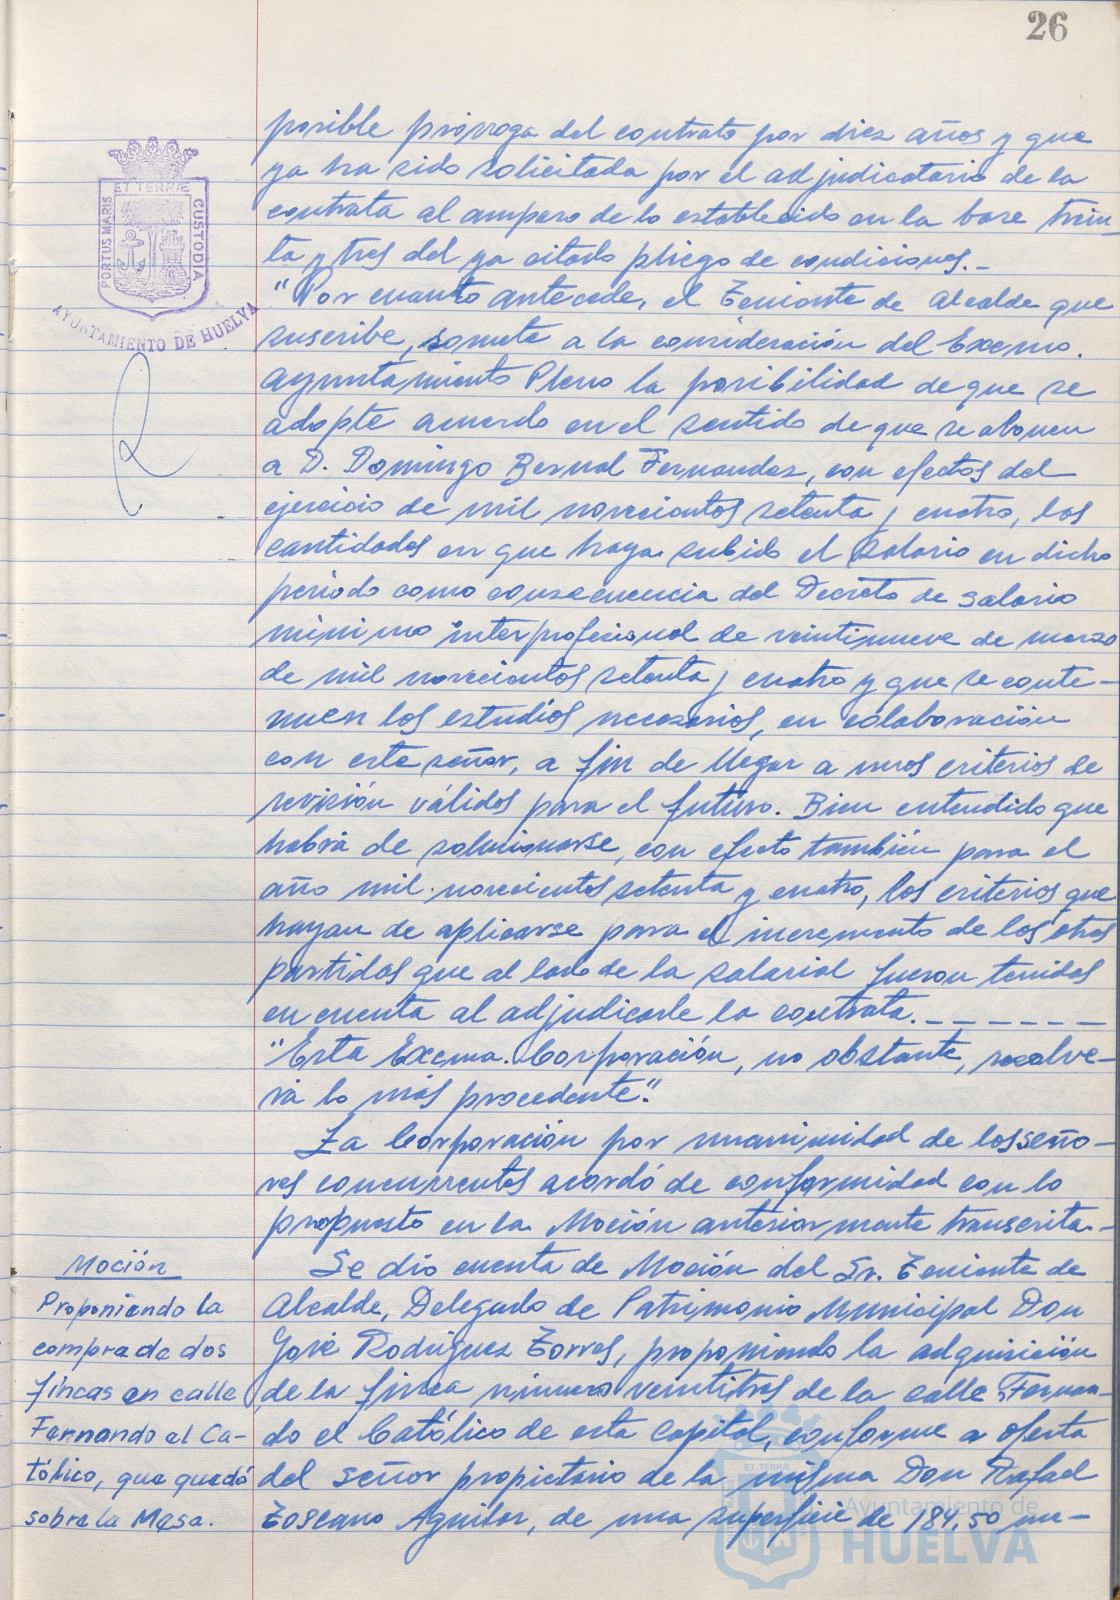 26
posible prórroga del contrato por diez años y que
ya ha sido solicitada por el adjudicatario de la
contrata al amparo de lo establecido en la base trein-
ta y tres del ya citado pliego de condiciones.-
"Por cuanto antecede, el Teniente de Alcalde que
suscribe, somete a la consideración del Excmo.
Ayuntamiento Pleno la posibilidad de que se
adopte acuerdo en el sentido de que se abonen
a D. Domingo Bernal Fernandez, con efectos del
ejercicio de mil novecientos setenta y cuatro, las
cantidades en que haya subido el salario en dicho
periodo como consecuencia del Decreto de salario
minimo interprofesional de veintinueve de marzo
de mil novecientos setenta y cuatro y que se conti-
nuen los estudios necesarios, en colaboración
con este señor, a fin de llegar a unos criterios de
revisión válidos para el futuro. Bien entendido que
habrá de solucionarse, con efecto también para el
año mil novecientos setenta y cuatro, los criterios que
hayan de aplicarse para el incremento de las otras
partidas que al lado de la salarial fueron tenidas
en cuenta al adjudicarle la contrata.- - - - - - -
"Esta Excma. Corporación, no obstante, resolve-
rá lo más procedente."
La Corporación por unanimidad de los seño-
res concurrentes acordó de conformidad con lo
propuesto en la Moción anteriormente transcrita.-
Se dio cuenta de Moción del Sr. Teniente de
Alcalde, Delegado de Patrimonio Municipal Don
José Rodríguez Torres, proponiendo la adquisición
de la finca número veintitres de la calle Fernan-
do el Católico de esta Capital, conforme a oferta
del señor propietario de la misma Don Rafael
Toscano Aguilar, de una superficie de 184,50 me-
Moción
Proponiendo la
compra de dos
fincas en calle
Fernando el Ca-
tólico, que quedó
sobre la Mesa.
PORTUS MARIS
ET TERRÆ
CUSTODIA
AYUNTAMIENTO DE HUELVA
Ayuntamiento de
HUELVA